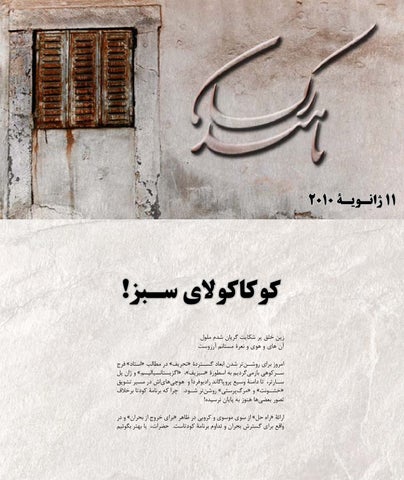 ناهید رکسان
۱۱ ژانـویـهٔ ۲۰۱۰
کوکاکولای سـبز!
زین خلق پر شکایت گریان شدم ملول
آن های و هوی و نعرهٔ مستانم آرزوست
امروز برای روشن‌تر شدن ابعاد گستردهٔ «تحریف» در مطالب «استاد» فرج
سرکوهی بازمی‌گردیم به اسطورهٔ «سبزیف»، «اگزیستانسیالیسم» و ژان پل
سارتر، تا دامنهٔ وسیع پروپاگاند رادیوفردا و هوچی‌های‌اش در مسیر تشویق
«خشونت» و «مرگ‌پرستی» روشن‌تر شود. چرا که برنامهٔ کودتا برخلاف
تصور بعضی‌ها هنوز به پایان نرسیده!
ارائهٔ «راه حل» از سوی موسوی و کروبی در ظاهر «برای خروج از بحران» و در
واقع برای گسترش بحران و تداوم برنامهٔ کودتاست. حضرات، یا بهتر بگوئیم